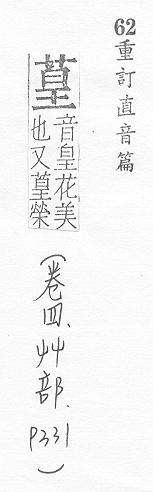 62重訂直音篇
葟
音皇花美
也又葟榮
(卷四、艸部、P331)